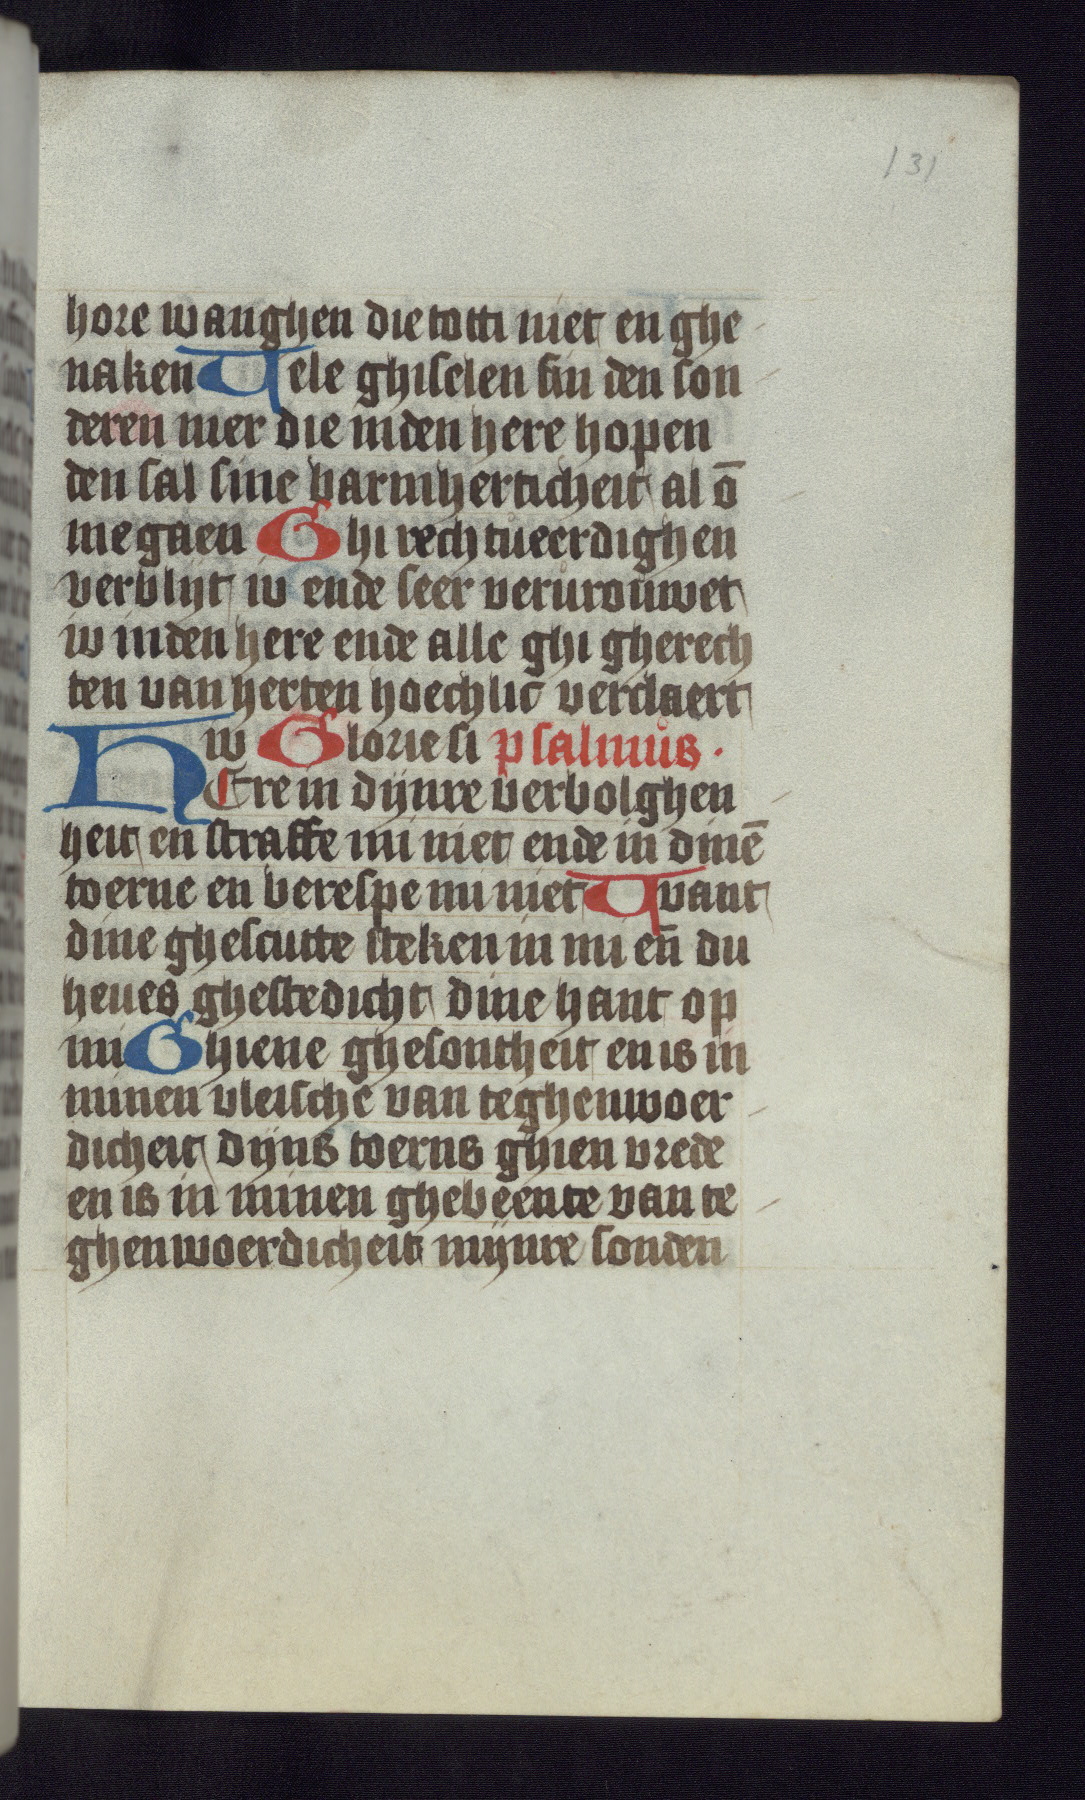 131
hore wanghen die totti niet en ghe
naken Vele ghiselen sin den son
deren mer die inden here hopen
den sal sine barmherticheit al ō
me gaen Ghi rechtueerdighen
verblijt iw ende seer verurouwet
iw inden here ende alle ghi gherech
ten van herten hoechlic verclaert
iw Glorie si psalmus.
HEre in dijnre verbolghen
heit en straffe mi niet ende in dinē
toerne en berespe mi niet Want
dine ghescutte steken in mi en̄ du
heues ghestedicht dine hant op
mi Ghiene ghesontheit en is in
minen vleische van teghenwoer
dicheit dijns toerns ghien vrede
en is in minen ghebeente van te
ghenwoerdicheit mijnre sonden